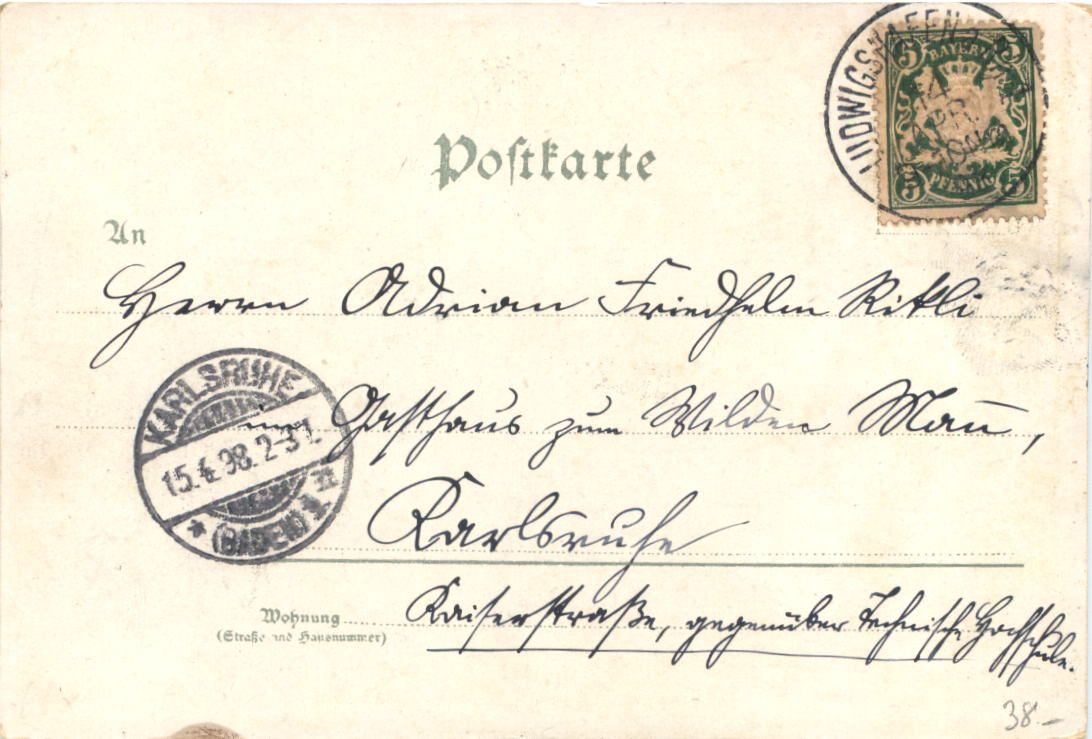 LUDWIGSHAFEN
5 5
BAYERN
14
APR.
PFENNIG
5 5
Postkarte
An
Herrn Adrian Friedhelm Rikli
im Gasthaus zum Wilden Mann,
KARLSRUHE
15.4.98.2-3
(BADEN)
Karlsruhe
Wohnung
(Straße und Hausnummer)
Kaiserstraße, gegenüber Technische Hochschule.
38.-